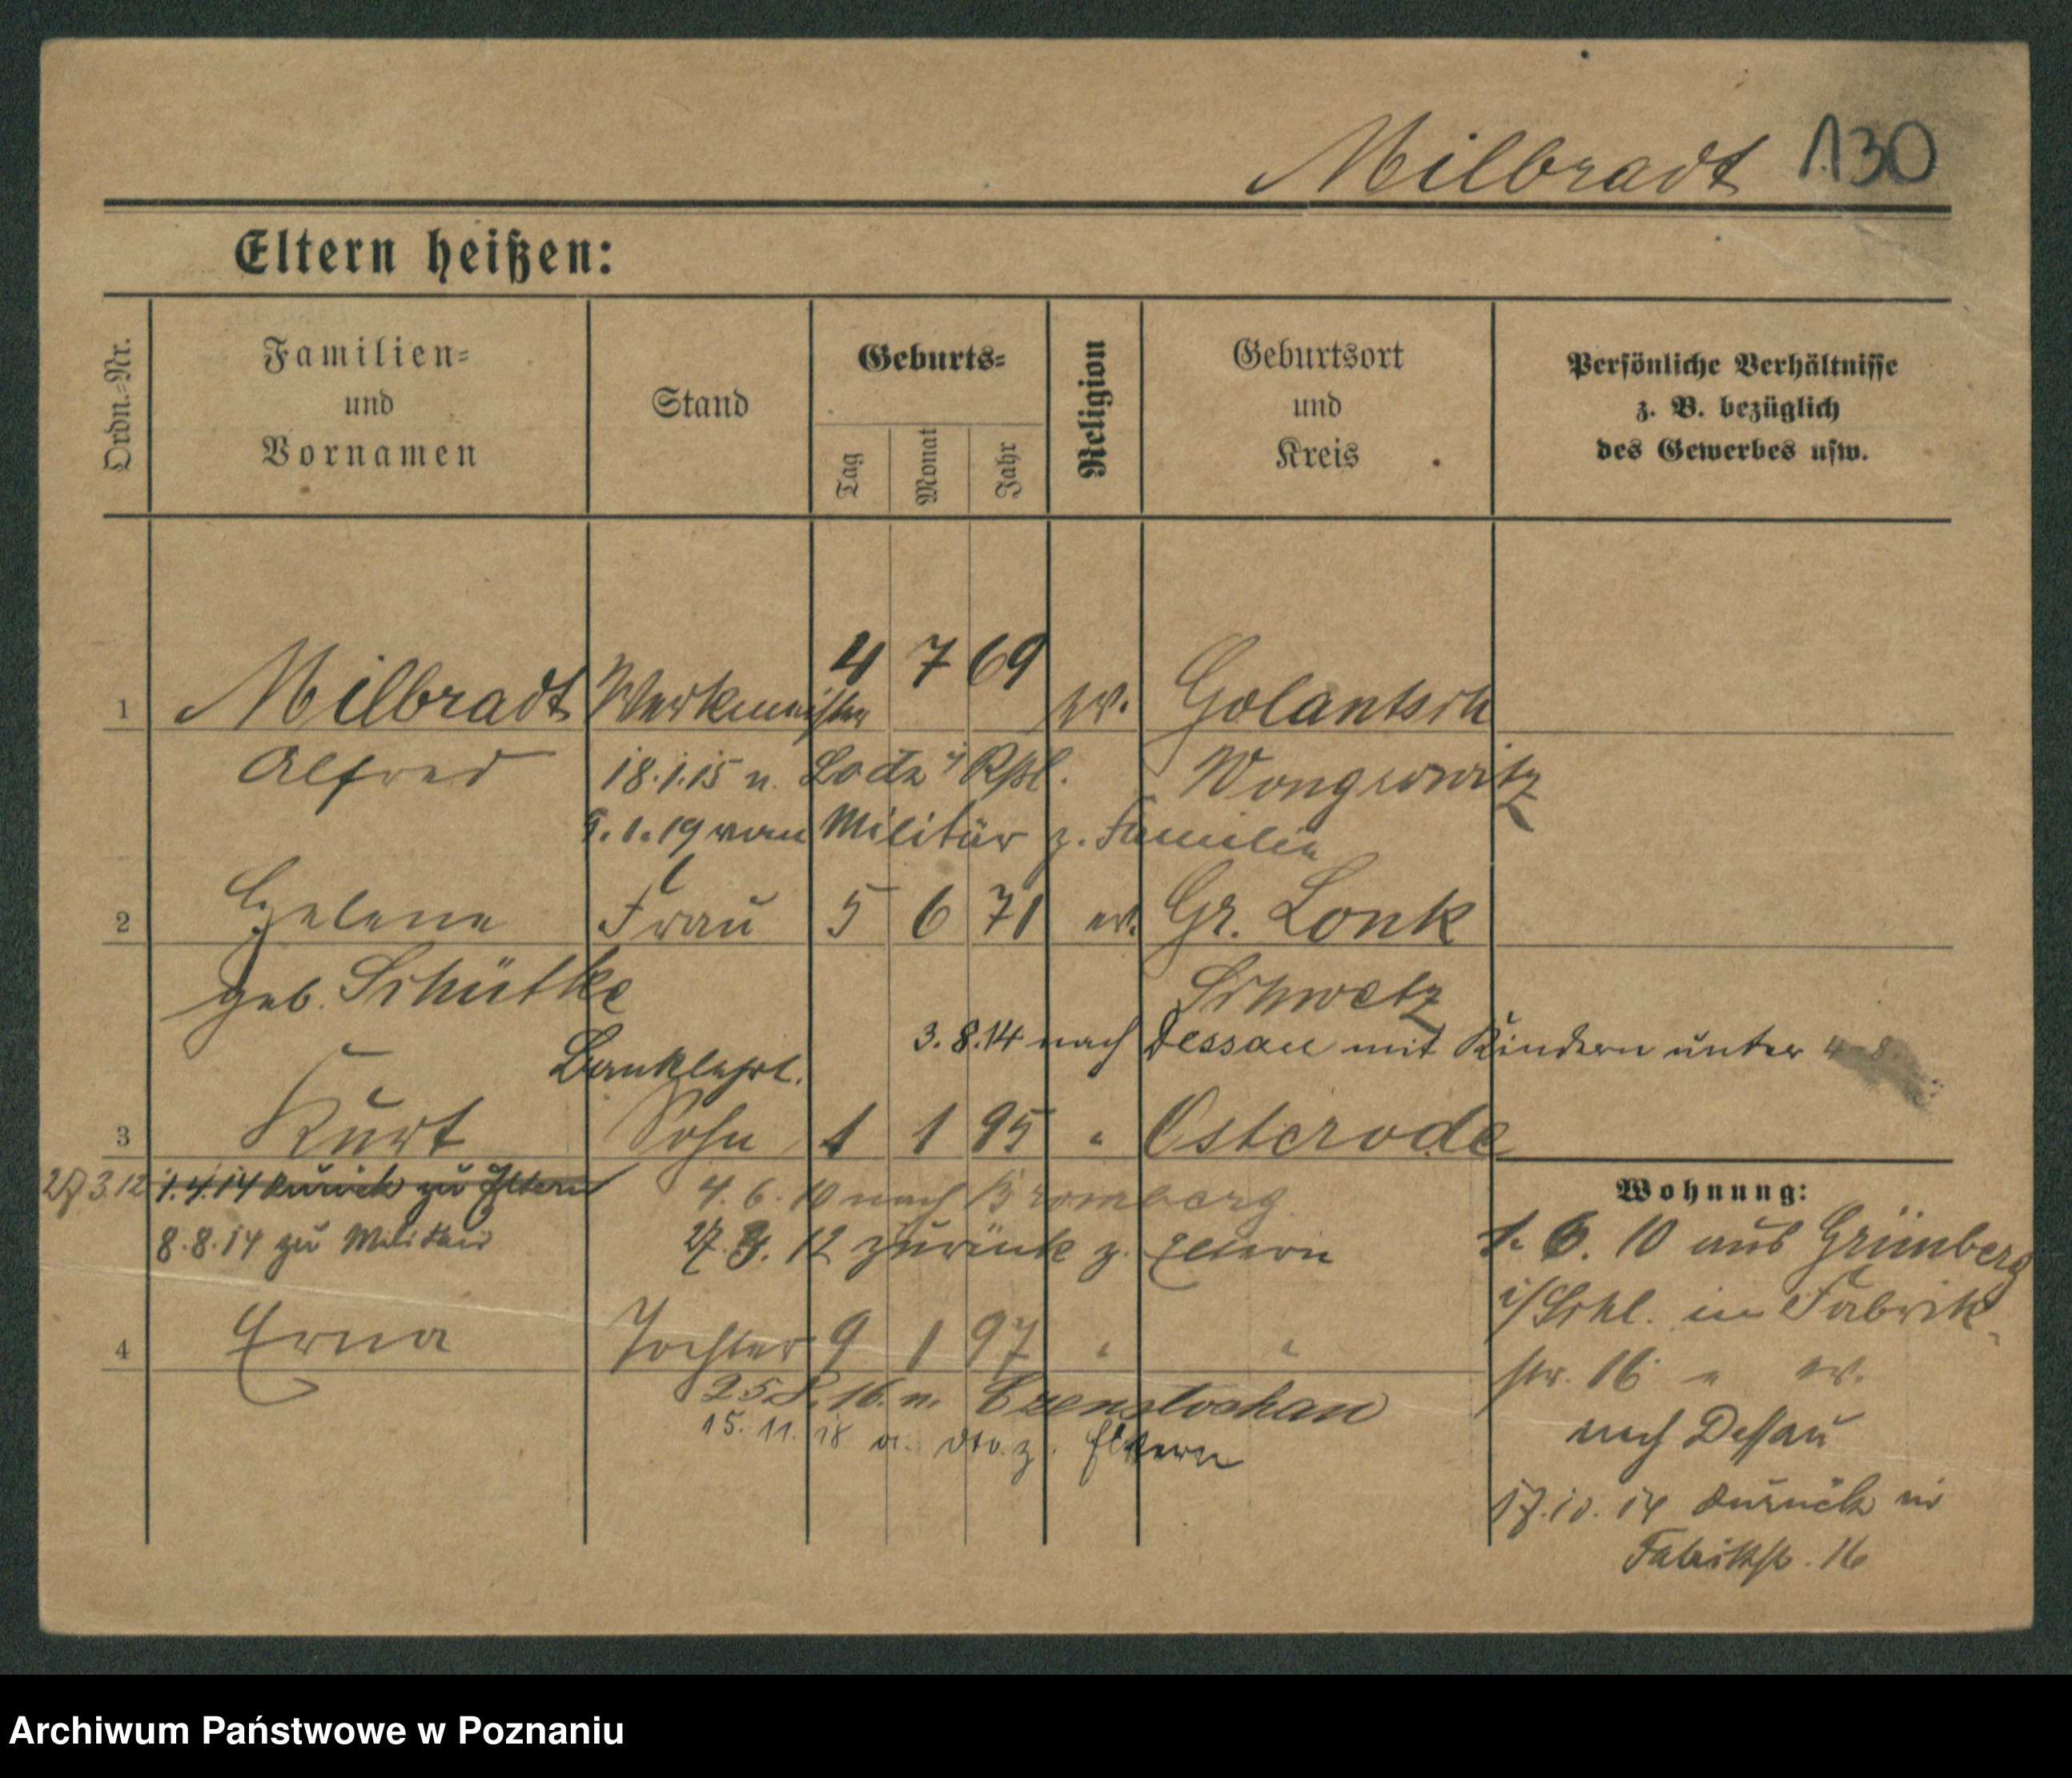 Milbradt 130
Eltern heißen:
Ordn.-Nr.
Familien-
und
Vornamen
Stand
Geburts-
Tag
Monat
Jahr
Religion
Geburtsort
und
Kreis
Persönliche Verhältnisse
z. B. bezüglich
des Gewerbes usw.
1 Milbradt Werkmeister 4 7 69 ev. Golantsch
Alfred 18.1.15 n. Lodz Wongrowitz
9.1.19 vom Militär z. Familie
2 Helene Frau 5 6 71 ev. Gr. Lonk
geb. Schütke Schwetz
3.8.14 nach Dessau mit Kindern unter
Banklehrl.
3 Kurt Sohn 1 1 95 " Osterode
27.3.12 1.4.14 zurück zu Eltern 4.6.10 nach Bromberg
8.8.14 zu Militär 27.3.12 zurück z. Eltern
4 Erna Tochter 9 1 97 " "
25.8.16 n. Czenstochau
15.11.18 v. dto. z. Eltern
Wohnung:
1.6.10 aus Grünberg
i/Schl. in Fabrik-
str. 16
nach Dessau
17.10.14 zurück in
Fabrikstr. 16
Archiwum Państwowe w Poznaniu